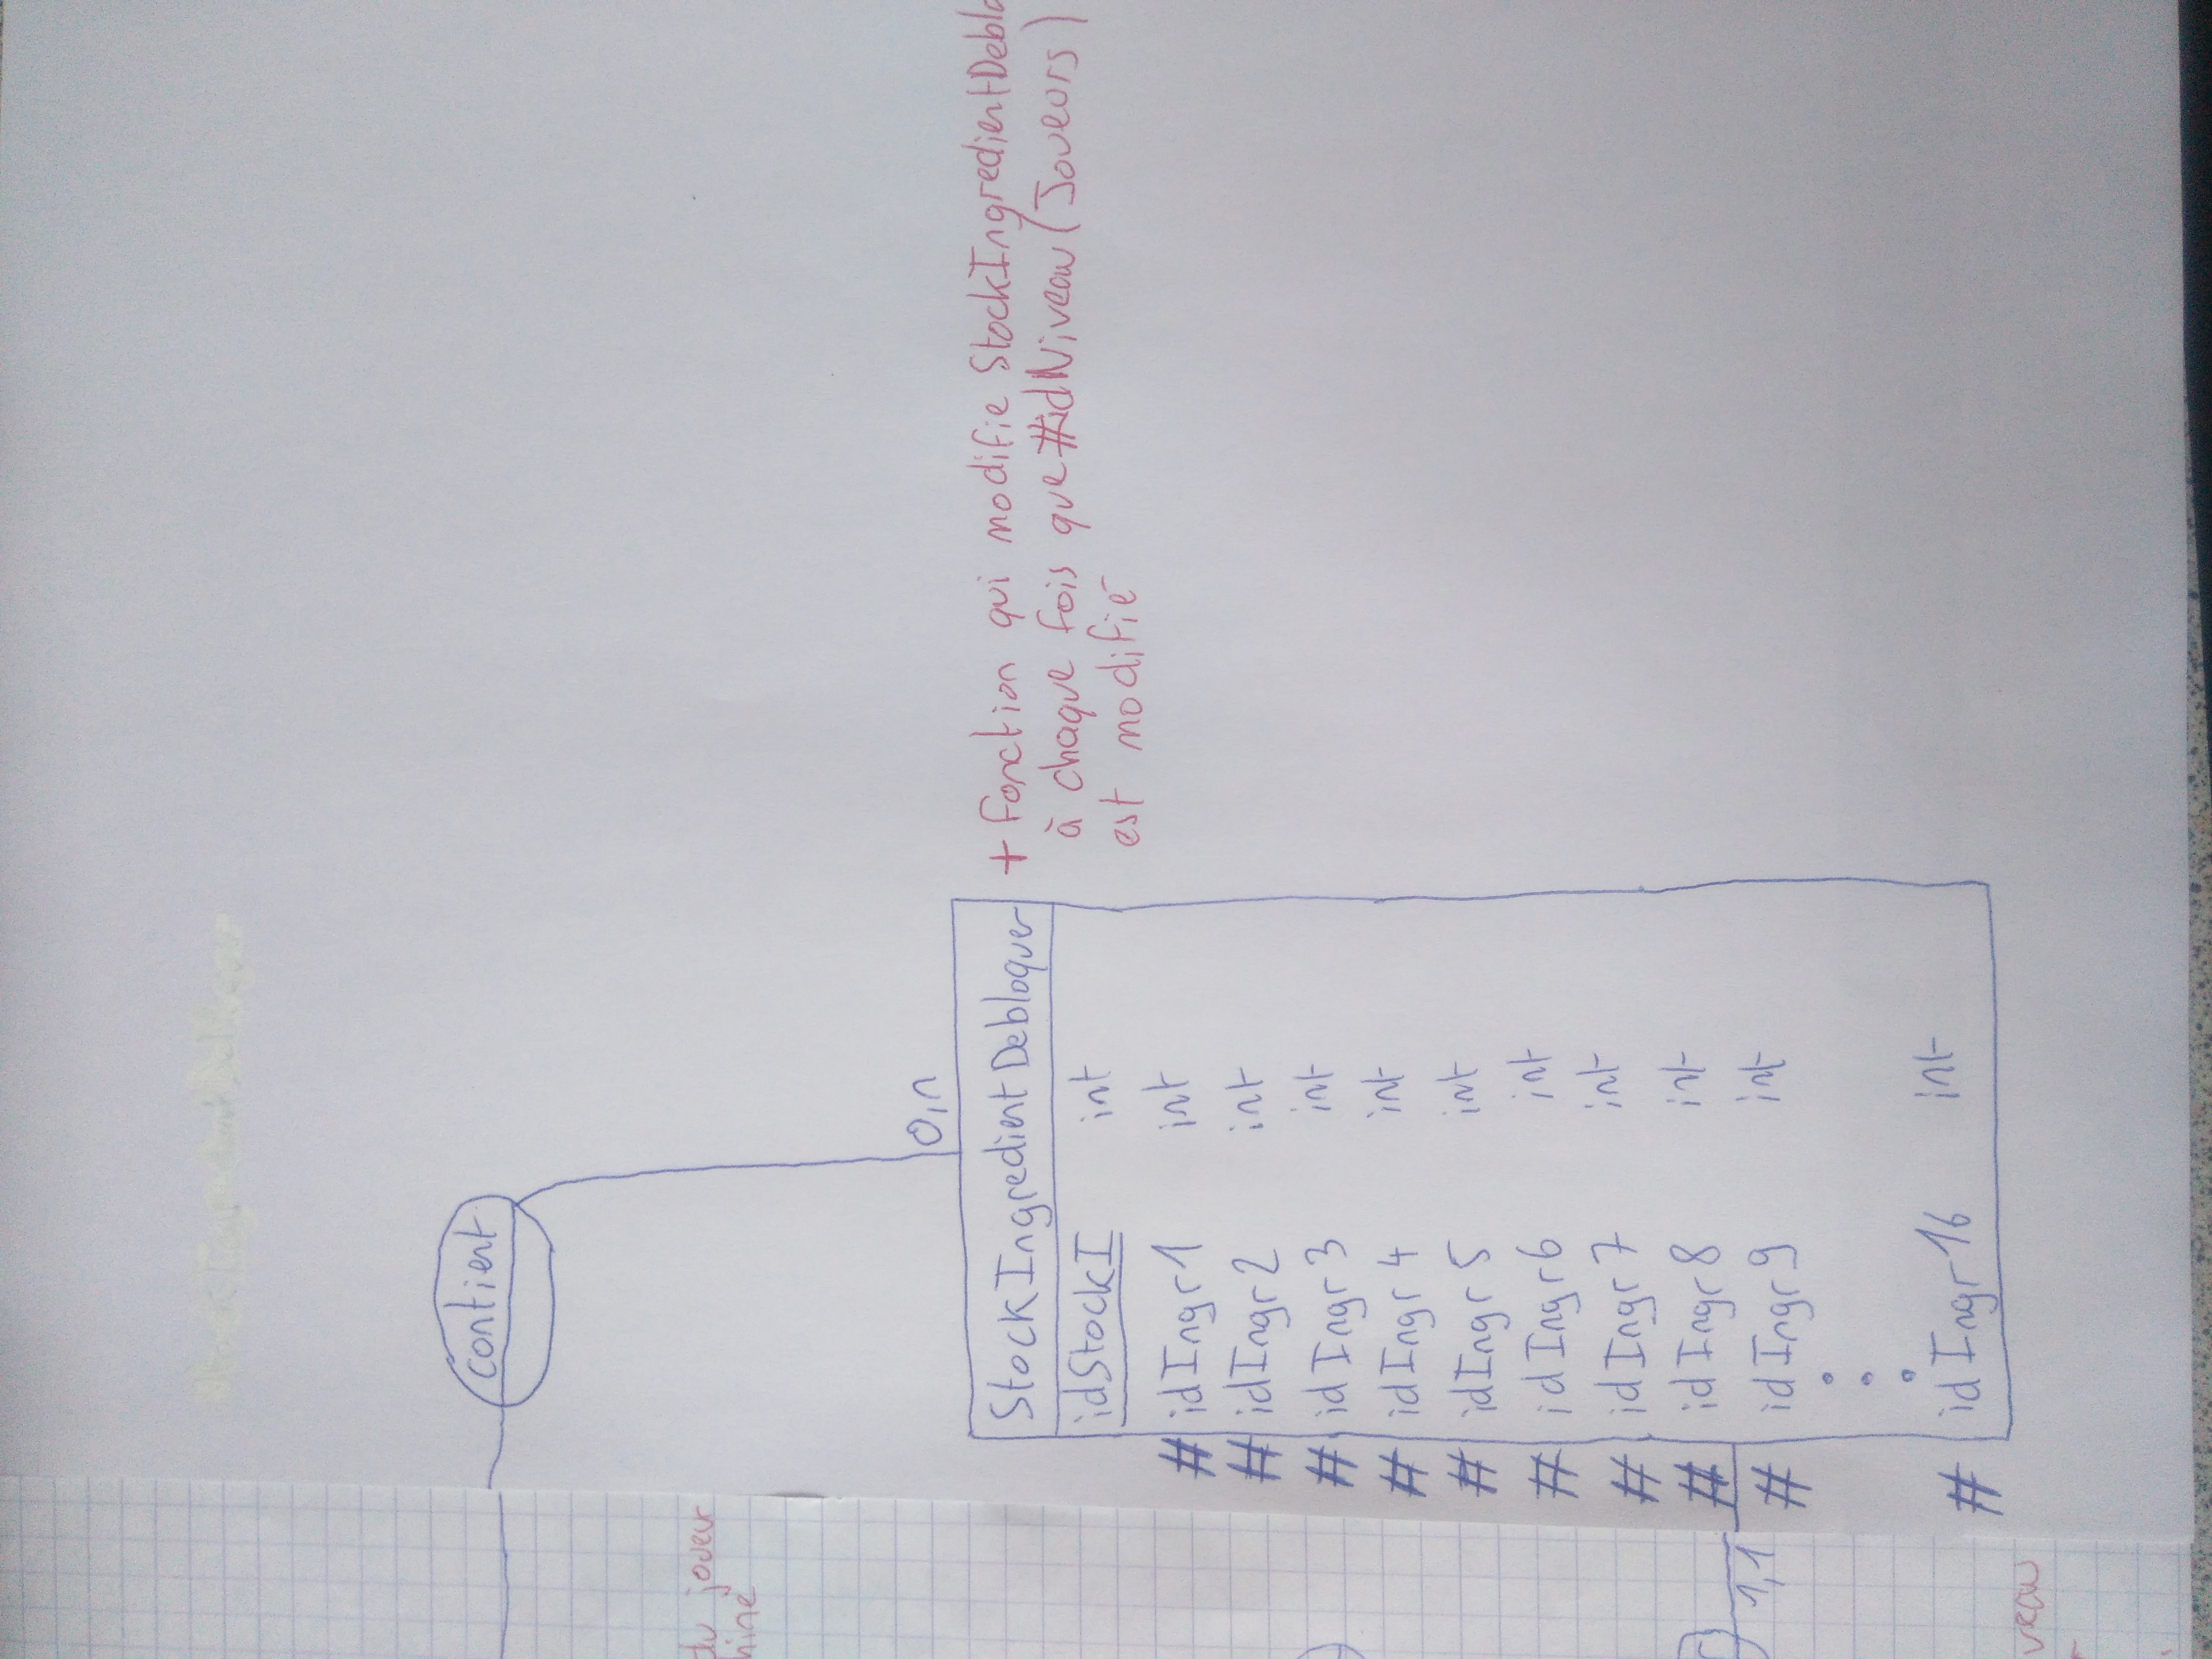 contient
0,n
StockIngredientDebloquer
idStockI int
# idIngr1 int
# idIngr2 int
# idIngr3 int
# idIngr4 int
# idIngr5 int
# idIngr6 int
# idIngr7 int
# idIngr8 int
# idIngr9 int
# idIngr16 int
+ fonction qui modifie StockIngredientDeblo
à chaque fois que #idNiveau (Joueurs)
est modifié
du joueur
hine
1,1
veau